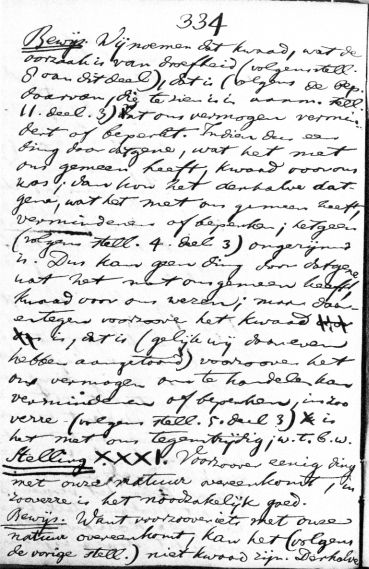 334
Bewijs. Wij noemen dat kwaad, wat de
oorzaak is van droefheid (volgens stell.
8 van dit deel), dat is (volgens de bep.
daarvan, die te zien is in aanm. stell.
11. deel. 3) dat ons vermogen vermin-
dert of beperkt. Indien dus een
ding door datgene, wat het met
ons gemeen heeft, kwaad voor ons
was, dan kon het derhalve dat-
gene, wat het met ons gemeen heeft,
verminderen of beperken; hetgeen
(volgens stell. 4. deel 3) ongerijmd
is. Dus kan geen ding door datgene
wat het met ons gemeen heeft,
kwaad voor ons wezen; maar daar-
entegen voorzoover het kwaad
is, dat is (gelijk wij daareven
hebben aangetoond) voorzoover het
ons vermogen om te handelen kan
verminderen of beperken, in zoo
verre (volgens stell. 5. deel 3) is
het met ons tegenstrijdig; w. t. b. w.
Stelling XXXI. Voorzoover eenig ding
met onze natuur overeenkomt, in
zooverre is het noodzakelijk goed.
Bewijs. Want voorzoover iets met onze
natuur overeenkomt, kan het (volgens
de vorige stell.) niet kwaad zijn. Derhalve